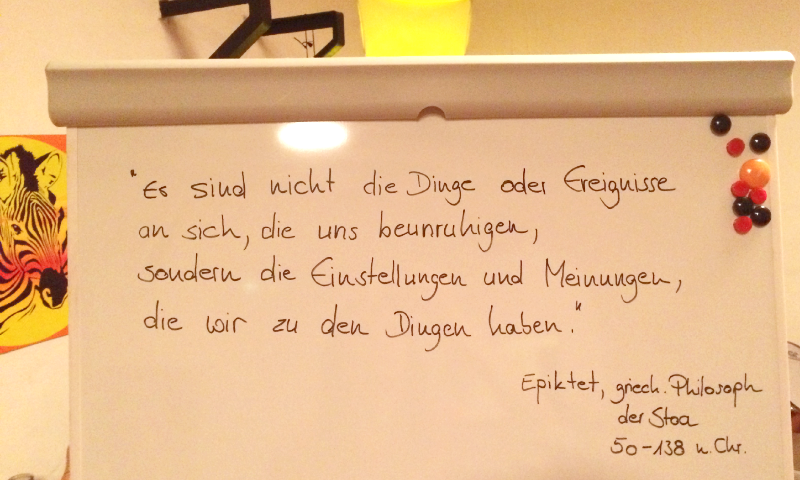 "Es sind nicht die Dinge oder Ereignisse
an sich, die uns beunruhigen,
sondern die Einstellungen und Meinungen,
die wir zu den Dingen haben."
Epiktet, griech. Philosoph
der Stoa
50-138 n. Chr.